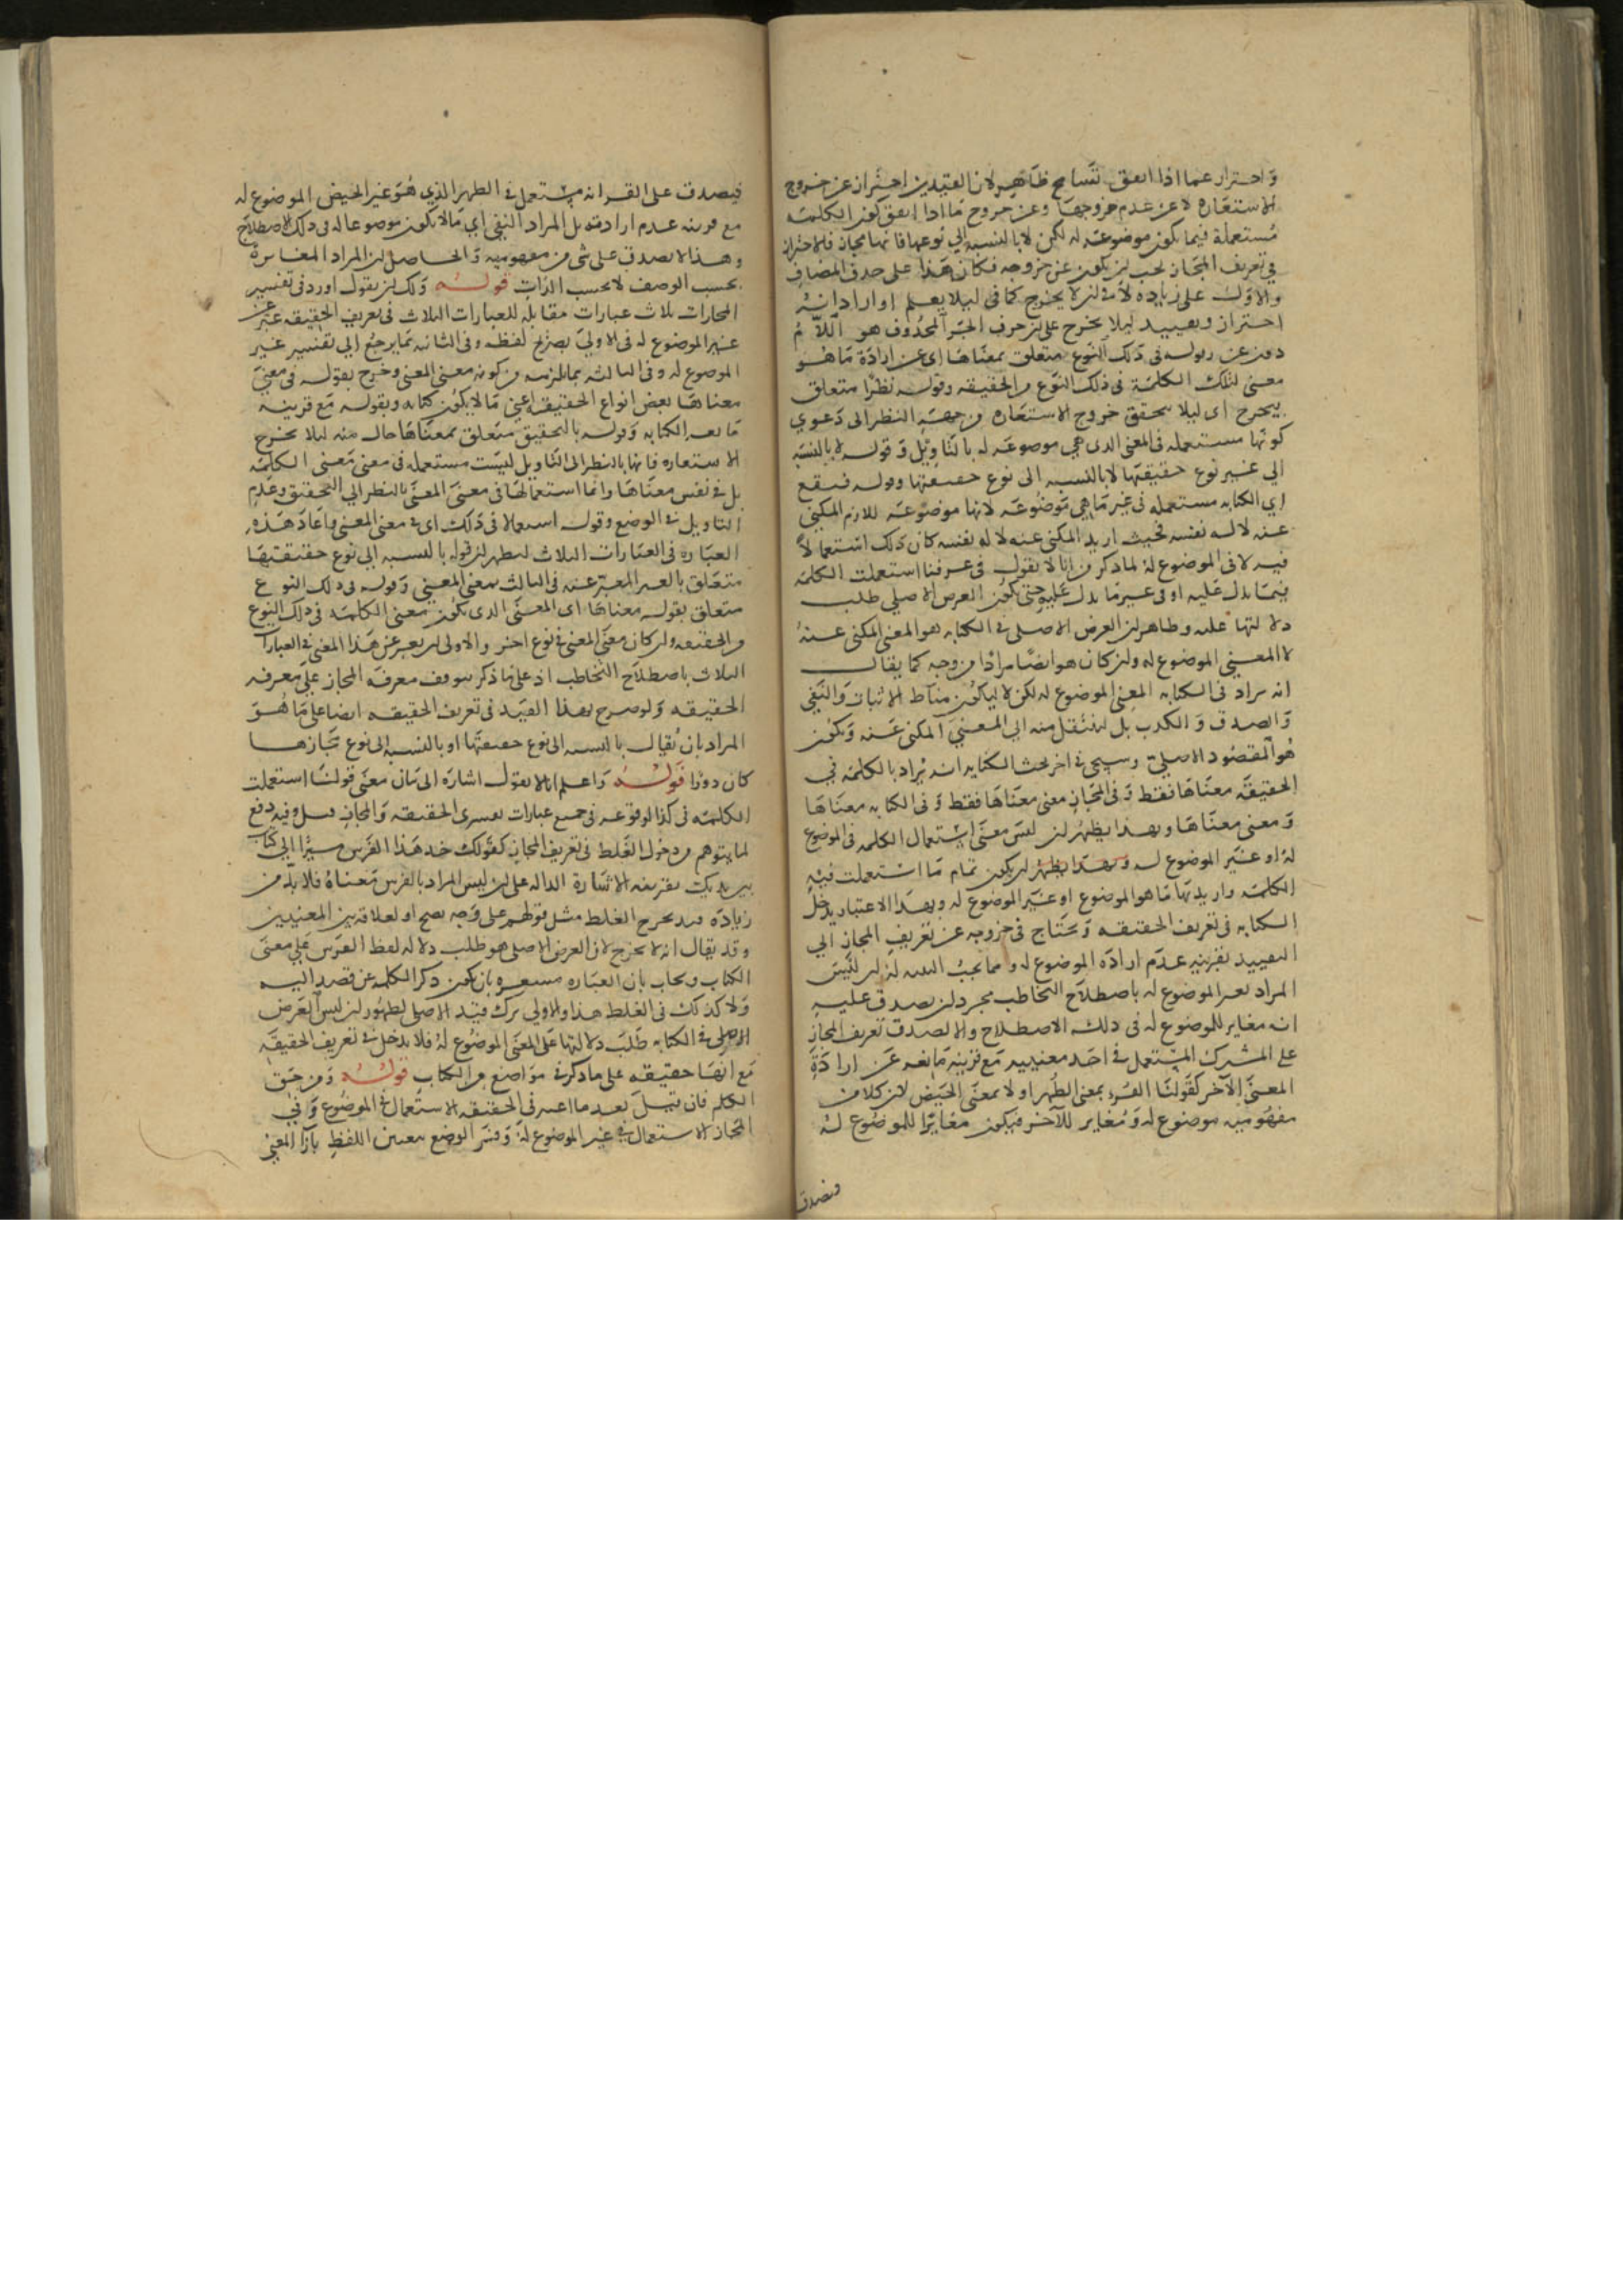 واحتراز عما اذا اتفق تسامح ظاهر لان القيدين احتراز عن خروج
الاستعارة لا عن عدم خروجها وعن خروج ما اذا اتفق كون الكلمة
مستعملة فيما يكون موضوعة له لكن لا بالنسبة الي نوعها فانها مجاز فالاحتراز
في تعريف المجاز يجب ان يكون عن خروجه فكان هذا على حذف المضاف
والاول على زيادة لا في ان لا يخرج كما في ليلا يعلم او اراد انه
احتراز وتقييد ليلا يخرج على ان حرف الجر المحذوف هو اللام
دون عن وقوله في ذلك النوع متعلق بمعناها اى عن ارادة ما هو
معنى لتلك الكلمة في ذلك النوع من الحقيقه وقوله نظرا متعلق
بيخرج اى ليلا يتحقق خروج الاستعارة من جهة النظر الى دعوي
كونها مستعمله في المعنى الذى هي موضوعة له بالتاويل وقوله لا بالنسبة
الي غير نوع حقيقتها لا بالنسبه الى نوع حقيقتها وقوله فيقع
اي الكناية مستعمله في غير ما هي موضوعة لانها موضوعة للازم المكني
عنه لا له نفسه فحيث اريد المكني عنه لا له نفسه كان ذلك استعمالا
فيه لا في الموضوع له لما ذكر من انا لا نقول في عرفنا استعملت الكلمة
فيما تدل عليه او في غير ما تدل عليه حتى يكون الغرض الاصلي طلب
دلالتها عليه وظاهر ان الغرض الاصلى في الكناية هو المعنى المكنى عنه
لا المعنى الموضوع له وان كان هو ايضا مرادا من وجه كما يقال
انه يراد في الكناية المعنى الموضوع له لكن لا ليكون مناط الاثبات والنفي
والصدق والكذب بل لينتقل منه الي المعنى المكنى عنه ويكون
هو المقصود الاصلي وسيجي في اخر بحث الكناية انه يراد بالكلمة في
الحقيقة معناها فقط وفى المجاز معنى معناها فقط وفي الكناية معناها
ومعنى معناها وبهذا يظهر ان ليس معنى استعمال الكلمه في الموضوع
له او غير الموضوع له وبهذا يظهر ان يكون تمام ما استعملت فيه
الكلمة واريد بها ما هو الموضوع او غير الموضوع له وبهذا الاعتبار يدخل
الكناية في تعريف الحقيقه وتحتاج في خروجه عن تعريف المجاز الي
التقييد بقرينة عدم ارادة الموضوع له ومما يجب التنبه له ان ليس
المراد بغير الموضوع له باصطلاح التخاطب مجرد ان يصدق عليه
انه مغاير للموضوع له في ذلك الاصطلاح والا لصدق تعريف المجاز
على المشترك المستعمل في احد معنييه مع قرينة مانعه عن ارادة
المعنى الآخر كقولنا القرء بمعنى الطهر او لا بمعنى الحيض لان كلا من
مفهوميه موضوع له ومغاير للآخر فيكون مغايرا للموضوع له
فيصدق
فيصدق على القرء انه مستعمل في الطهر الذي هو غير الحيض الموضوع له
مع قرينه عدم ارادته بل المراد النفي اي ما لا يكون موضوعا له في ذلك الاصطلاح
وهذا لا يصدق على شى من مفهوميه والحاصل ان المراد المغايرة
بحسب الوصف لا بحسب الذات قوله ولك ان تقول اورد في تفسير
المجازات ثلاث عبارات مقابلة للعبارات الثلاث في تعريف الحقيقه عبر عن
غير الموضوع له في الاولي بصريح لفظه وفي الثانيه بما يرجع الي تفسير غير
الموضوع له وفي الثالثه بما يلزمه من كونه معنى المعنى وخرج بقوله في معنى
معناها بعض انواع الحقيقة اعني ما لا يكون كناية وبقوله مع قرينه
مانعه الكناية وقوله بالتحقيق متعلق بمعناها حال منه ليلا يخرج
الاستعاره فانها بالنظر الى التاويل ليست مستعمله في معنى معنى الكلمة
بل في نفس معناها وانما استعمالها في معنى المعنى بالنظر الي التحقيق وعدم
التاويل في الوضع وقوله استعمالا في ذلك اى في معنى المعنى واعاد هذه
العبارة في العبارات الثلاث ليظهر ان قوله بالنسبه الي نوع حقيقتها
متعلق بالغير المعبر عنه في الثالث بمعنى المعنى وقوله في ذلك النوع
متعلق بقوله معناها اى المعنى الذى يكون معنى الكلمة في ذلك النوع
من الحقيقه وان كان معنى المعنى في نوع اخر والاولى ان يعبر عن هذا المعنى في العبارات
الثلاث باصطلاح التخاطب اذ على ما ذكر يتوقف معرفة المجاز على معرفه
الحقيقه ولو صرح بهذا القيد في تعريف الحقيقه ايضا على ما هو
المراد بان يقال بالنسبه الى نوع حقيقتها او بالنسبه الى نوع مجازها
كان دورا قوله واعلم انا لا نقول اشاره الى بيان معنى قولنا استعملت
الكلمة في كذا لوقوعه في جميع عبارات تفسيرى الحقيقه والمجاز قيل وفيه دفع
لما يتوهم من دخول الغلط في تعريف المجاز كقولك خذ هذا الفرس مشيرا الي كتاب
بين يديك بقرينه الاشارة الداله على ان ليس المراد بالفرس معناه فلا بد من
زيادة قيد يخرج الغلط مثل قولهم على وجه يصح او لعلاقة بين المعنيين
وقد يقال انه لا يخرج لان الغرض الاصلى هو طلب دلالة لفظ الفرس على معنى
الكتاب ويجاب بان العبارة مشعره بان يكون ذكر الكلمه عن قصد اليه
ولا كذلك في الغلط هذا والاولي ترك قيد الاصلى لظهور ان ليس الغرض
الاصلى في الكناية طلب دلالتها على المعنى الموضوع له فلا يدخل في تعريف الحقيقة
مع انها حقيقه على ما ذكر في مواضع من الكتاب قوله ومن حق
الكلم فان قيل بعد ما اعتبر في الحقيقه الاستعمال في الموضوع وفي
المجاز الاستعمال في غير الموضوع له وفسر الوضع بتعيين اللفظ بازا المعني